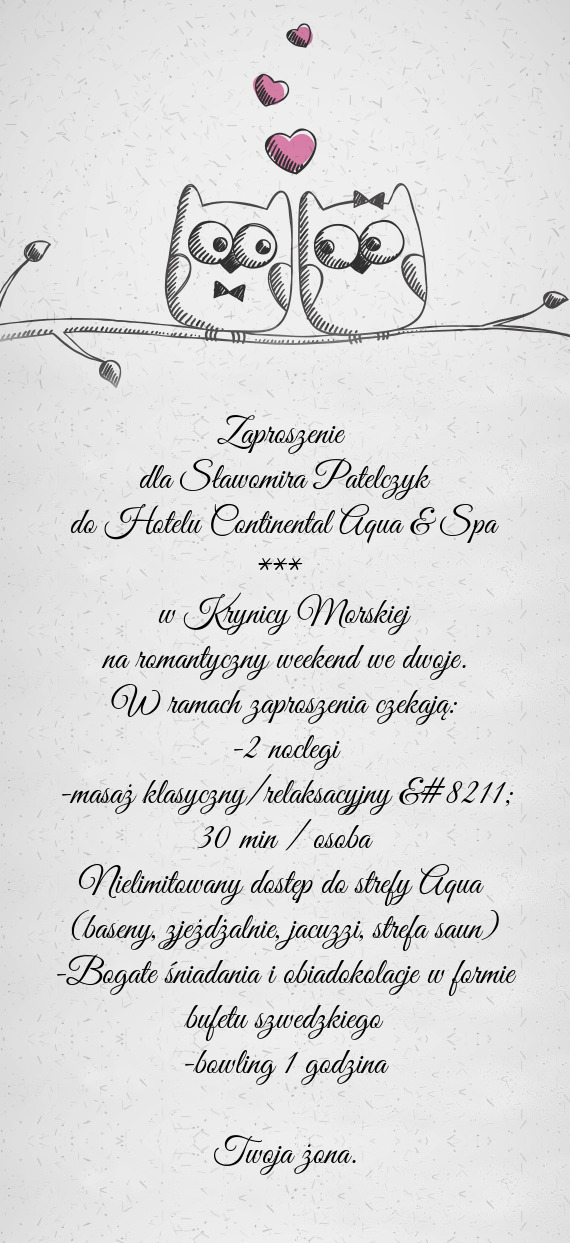 Zaproszenie
dla Sławomira Patelczyk
do Hotelu Continental Aqua & Spa
***
w Krynicy Morskiej
na romantyczny weekend we dwoje.
W ramach zaproszenia czekają:
-2 noclegi
-masaż klasyczny/relaksacyjny &#8211;
30 min / osoba
Nielimitowany dostęp do strefy Aqua
(baseny, zjeżdżalnie, jacuzzi, strefa saun)
-Bogate śniadania i obiadokolacje w formie
bufetu szwedzkiego
-bowling 1 godzina
Twoja żona.